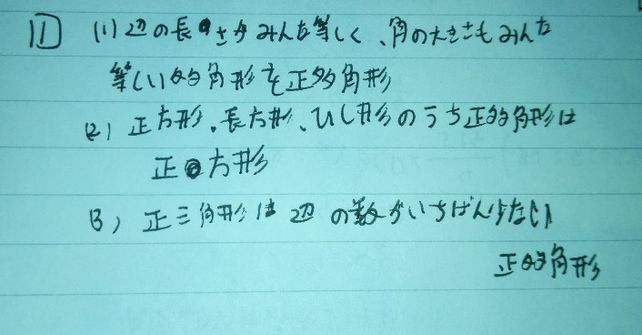 1 (1) 辺の長さがみんな等しく、角の大きさもみんな
等しい多角形を正多角形
(2) 正方形、長方形、ひし形のうち正多角形は
正方形
(3) 正三角形は辺の数がいちばん少ない
正多角形